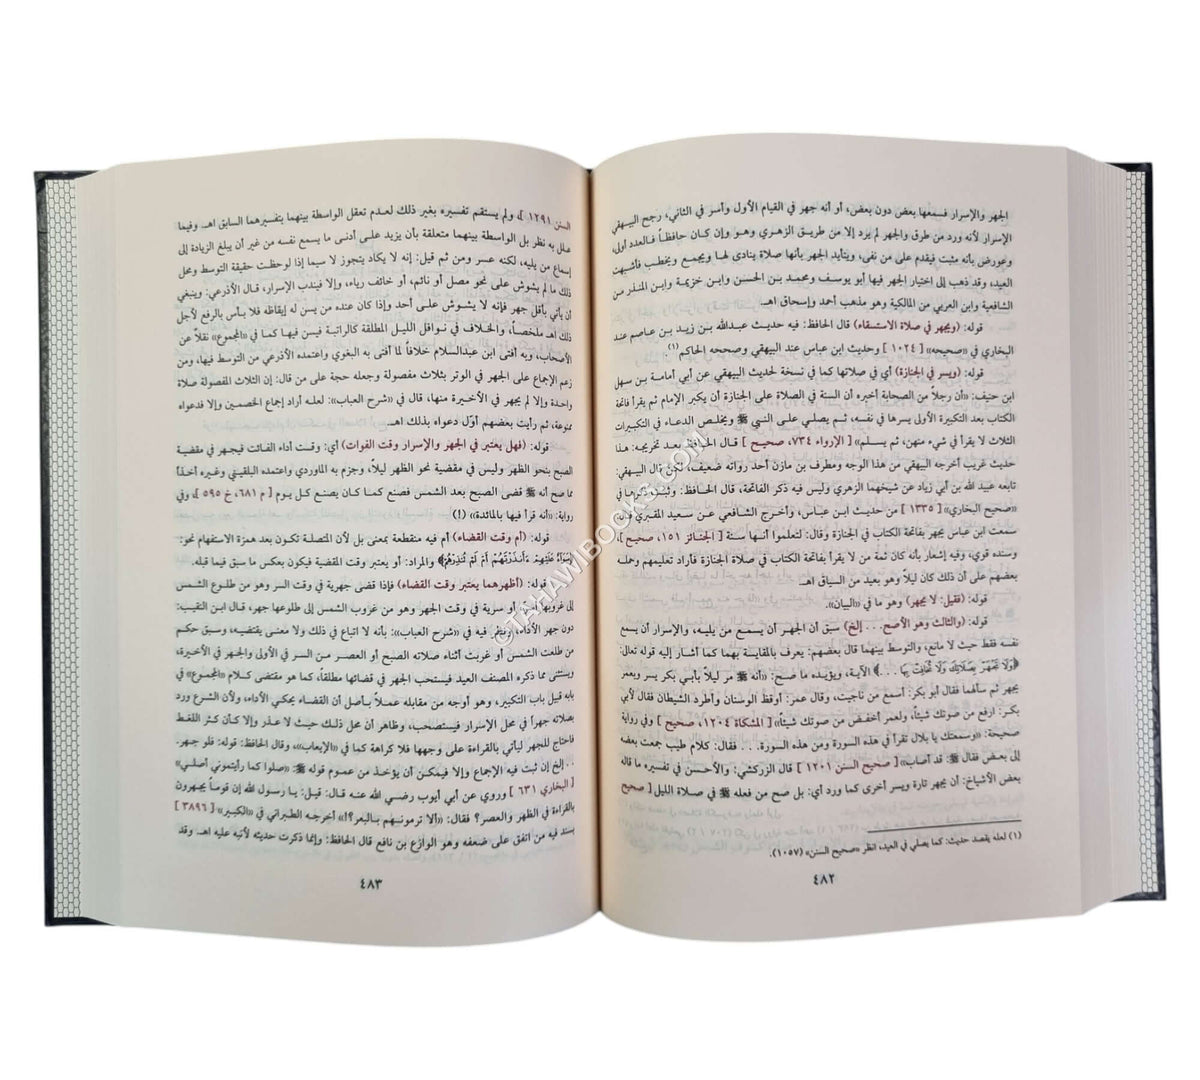 الجهر والإسرار فسمعها بعض دون بعض، أو أنه جهر في القيام الأول وأسر في الثاني، رجح البيهقي
الإسرار لأنه ورد من طرق والجهر لم يرد إلا من طريق الزهري وهو وإن كان حافظاً فالعدد أولى،
وعورض بأنه مثبت فيقدم على من نفى، ويتأيد الجهر بأنها صلاة ينادى لها ويجمع ويخطب فأشبهت
العيد، وقد ذهب إلى اختيار الجهر فيها أبو يوسف ومحمد بن الحسن وابن خزيمة وابن المنذر من
الشافعية وابن العربي من المالكية وهو مذهب أحمد وإسحاق اهـ.
قوله: (ويجهر في صلاة الاستسقاء) قال الحافظ: فيه حديث عبدالله بن زيد بن عاصم عند
البخاري في «صحيحه» [ ١٠٢٤ ] وحديث ابن عباس عند البيهقي وصححه الحاكم(١)
قوله: (ويسر في الجنازة) أي في صلاتها كما في نسخة لحديث البيهقي عن أبي أمامة بن سهل
ابن حنيف: أن رجلاً من الصحابة أخبره أن السنة في الصلاة على الجنازة أن يكبر الإمام ثم يقرأ فاتحة
الكتاب بعد التكبيرة الأولى يسرها في نفسه، ثم يصلي على النبي ﷺ ويخلص الدعاء في التكبيرات
الثلاث لا يقرأ في شيء منهن، ثم يسلم» [ الإرواء ٧٣٤، صحيح ] قال الحافظ بعد تخريجه: هذا
حديث غريب أخرجه البيهقي من هذا الوجه ومطرف بن مازن أحد رواته ضعيف، لكن قال البيهقي:
تابعه عبيد الله بن أبي زياد عن شيخهما الزهري وليس فيه ذكر الفاتحة، قال الحافظ: وثبت ذكرها في
«صحيح البخاري» [ ١٣٣٥ ] من حديث ابن عباس، وأخرج الشافعي عن سعيد المقبري قال:
سمعت ابن عباس يجهر بفاتحة الكتاب في الجنازة وقال: لتعلموا أنها سنة [ الجنائز ١٥١، صحيح ]،
وسنده قوي، وفيه إشعار بأنه كان ثمة من لا يقرأ بفاتحة الكتاب في الجنازة فأراد تعليمهم وحمله
بعضهم على أن ذلك كان ليلاً وهو بعيد من السياق اهـ
قوله: (فقيل: لا يجهر) وهو ما في «البيان».
قوله: (والثالث وهو الأصح . . . إلخ) سبق أن الجهر أن يسمع من يليه، والإسرار أن يسمع
نفسه فقط حيث لا مانع، والتوسط بينهما قال بعضهم: يعرف بالمقايسة بهما كما أشار إليه قوله تعالى:
﴿وَلَا تَجْهَرْ بِصَلَاتِكَ وَلَا تُخَافِتْ بِهَا . . .﴾ الآية، ويؤيده ما صح: «أنه ﷺ مر ليلاً بأبي بكر يسر وبعمر
يجهر ثم سألهما فقال أبو بكر: أسمع من ناجيت، وقال عمر: أوقظ الوسنان وأطرد الشيطان فقال لأبي
بكر: ارفع من صوتك شيئاً، ولعمر اخفض من صوتك شيئاً» [ المشكاة ١٢٠٤، صحيح ] وفي رواية
صحيحة: «وسمعتك يا بلال تقرأ في هذه السورة ومن هذه السورة. . . فقال: كلام طيب جمعت بعضه
إلى بعض فقال ﷺ: قد أصاب» [ صحيح السنن ١٢٠١ ] قال الزركشي: والأحسن في تفسيره ما قاله
بعض الأشياخ: أن يجهر تارة ويسر أخرى كما ورد أي: بل صح من فعله ﷺ في صلاة الليل [ صحيح
(١) لعله يقصد حديث: كما يصلي في العيد، انظر «صحيح السنن» (١٠٥٧).
٤٨٢
السنن ١٢٩١ ]، ولم يستقم تفسيره بغير ذلك لعدم تعقل الواسطة بينهما بتفسيرهما السابق اهـ. وفيما
علل به نظر بل الواسطة بينهما متعلقة بأن يزيد على أدنى ما يسمع نفسه من غير أن يبلغ الزيادة إلى
إسماع من يليه، لكنه عسر ومن ثم قيل: إنه لا يكاد يتجوز لا سيما إذا لوحظت حقيقة التوسط ومحل
ذلك ما لم يشوش على نحو مصل أو نائم، أو خائف رياء، وإلا فيندب الإسرار، قال الأذرعي: وينبغي
أن يأتي بأقل جهر فإنه لا يشوش على أحد إذا كان عنده من لسن له إيقاظه فلا بأس بالرفع لأجل
ذلك اهـ ملخصاً، والخلاف في نوافل الليل المطلقة كالراتبة فيسن فيها كما في «المجموع» نقلاً عن
الأصحاب، وبه أفتى ابن عبدالسلام خلافاً لما أفتى به البغوي واعتمده الأذرعي من التوسط فيها، ومن
زعم الإجماع على الجهر في الوتر بثلاث مفصولة وجعله حجة على من قال: إن الثلاث المفصولة صلاة
واحدة وإلا لم يجهر في الأخيرة منها، قال في «شرح العباب»: لعله أراد إجماع الخصمين وإلا فدعواه
ممنوعة، ثم رأيت بعضهم أوّل دعواه بذلك اهـ.
قوله: (فهل يعتبر في الجهر والإسرار وقت الفوات) أي: وقت أداء الفائت فيجهر في مقضية
الصبح بنحو الظهر وليس في مقضية نحو الظهر ليلاً، وجزم به الماوردي واعتمده البلقيني وغيره أخذاً
مما صح أنه ﷺ قضى الصبح بعد الشمس فصنع كما كان يصنع كل يوم [ م ٦٨١، خ ٥٩٥ ]، وفي
رواية: «أنه قرأ فيها بالمائدة» (!)
قوله: (أم وقت القضاء) أم فيه منقطعة بمعنى بل لأن المتصلة تكون بعد همزة الاستفهام نحو:
﴿سَوَاءٌ عَلَيْهِمْ ءَأَنذَرْتَهُمْ أَمْ لَمْ تُنذِرْهُمْ﴾ والمراد: أو يعتبر وقت المقضية فيكون بعكس ما سبق فيما قبله.
قوله: (أظهرهما يعتبر وقت القضاء) فإذا قضى جهرية في وقت السر وهو من طلوع الشمس
إلى غروبها أسر، أو سرية في وقت الجهر وهو من غروب الشمس إلى طلوعها جهر، قال ابن النقيب:
دون جهر الأداء، ونظر فيه في «شرح العباب»: بأنه لا اتباع في ذلك ولا معنى يقتضيه، وسبق حكم
من طلعت الشمس أو غربت أثناء صلاته الصبح أو العصر من السر في الأولى والجهر في الأخيرة،
ويستثنى مما ذكره المصنف العيد فيستحب الجهر في قضائها مطلقاً، كما هو مقتضى كلام «المجموع» في
بابه قبيل باب التكبير، وهو أوجه من مقابله عملاً بأصل أن القضاء يحكي الأداء، ولأن الشرع ورد
بصلاته جهراً في محل الإسرار فيستصحب، وظاهر أن محل ذلك حيث لا عذر وإلا كأن كثر اللغط
فاحتاج للجهر ليأتي بالقراءة على وجهها فلا كراهة كما في «الإيعاب»، وقال الحافظ: قوله: فلو جهر.
. . إلخ إن ثبت فيه الإجماع وإلا فيمكن أن يؤخذ من عموم قوله ﷺ: «صلوا كما رأيتموني أصلي»
[ البخاري ٦٣١ ] وروي عن أبي أيوب رضي الله عنه قال: قيل: يا رسول الله إن قوماً يجهرون
بالقراءة في الظهر والعصر؟ فقال: «ألا ترمونهم بالبعر؟!» أخرجه الطبراني في «الكبير» [ ٣٨٩٦ ]
بسند فيه من اتفق على ضعفه وهو الوازع بن نافع قال الحافظ: وإنما ذكرت حديثه لأنبه عليه اهـ، وقد
٤٨٣
©TAHAWIBOOKS.COM